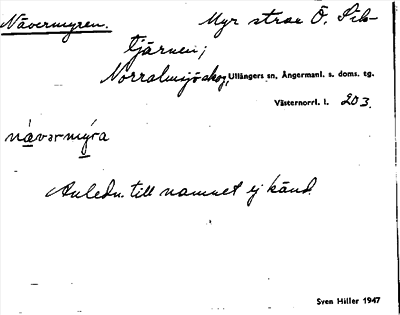 Nävermyren. Myr strax Ö. Sik-
tjärnen;
Norralmsjöskog, Ullångers sn, Ångermanl. s. doms. tg.
Västernorrl. l. 203.
nä̀vərmýra
Anledn. till namnet ej känd.
Sven Hiller 1947